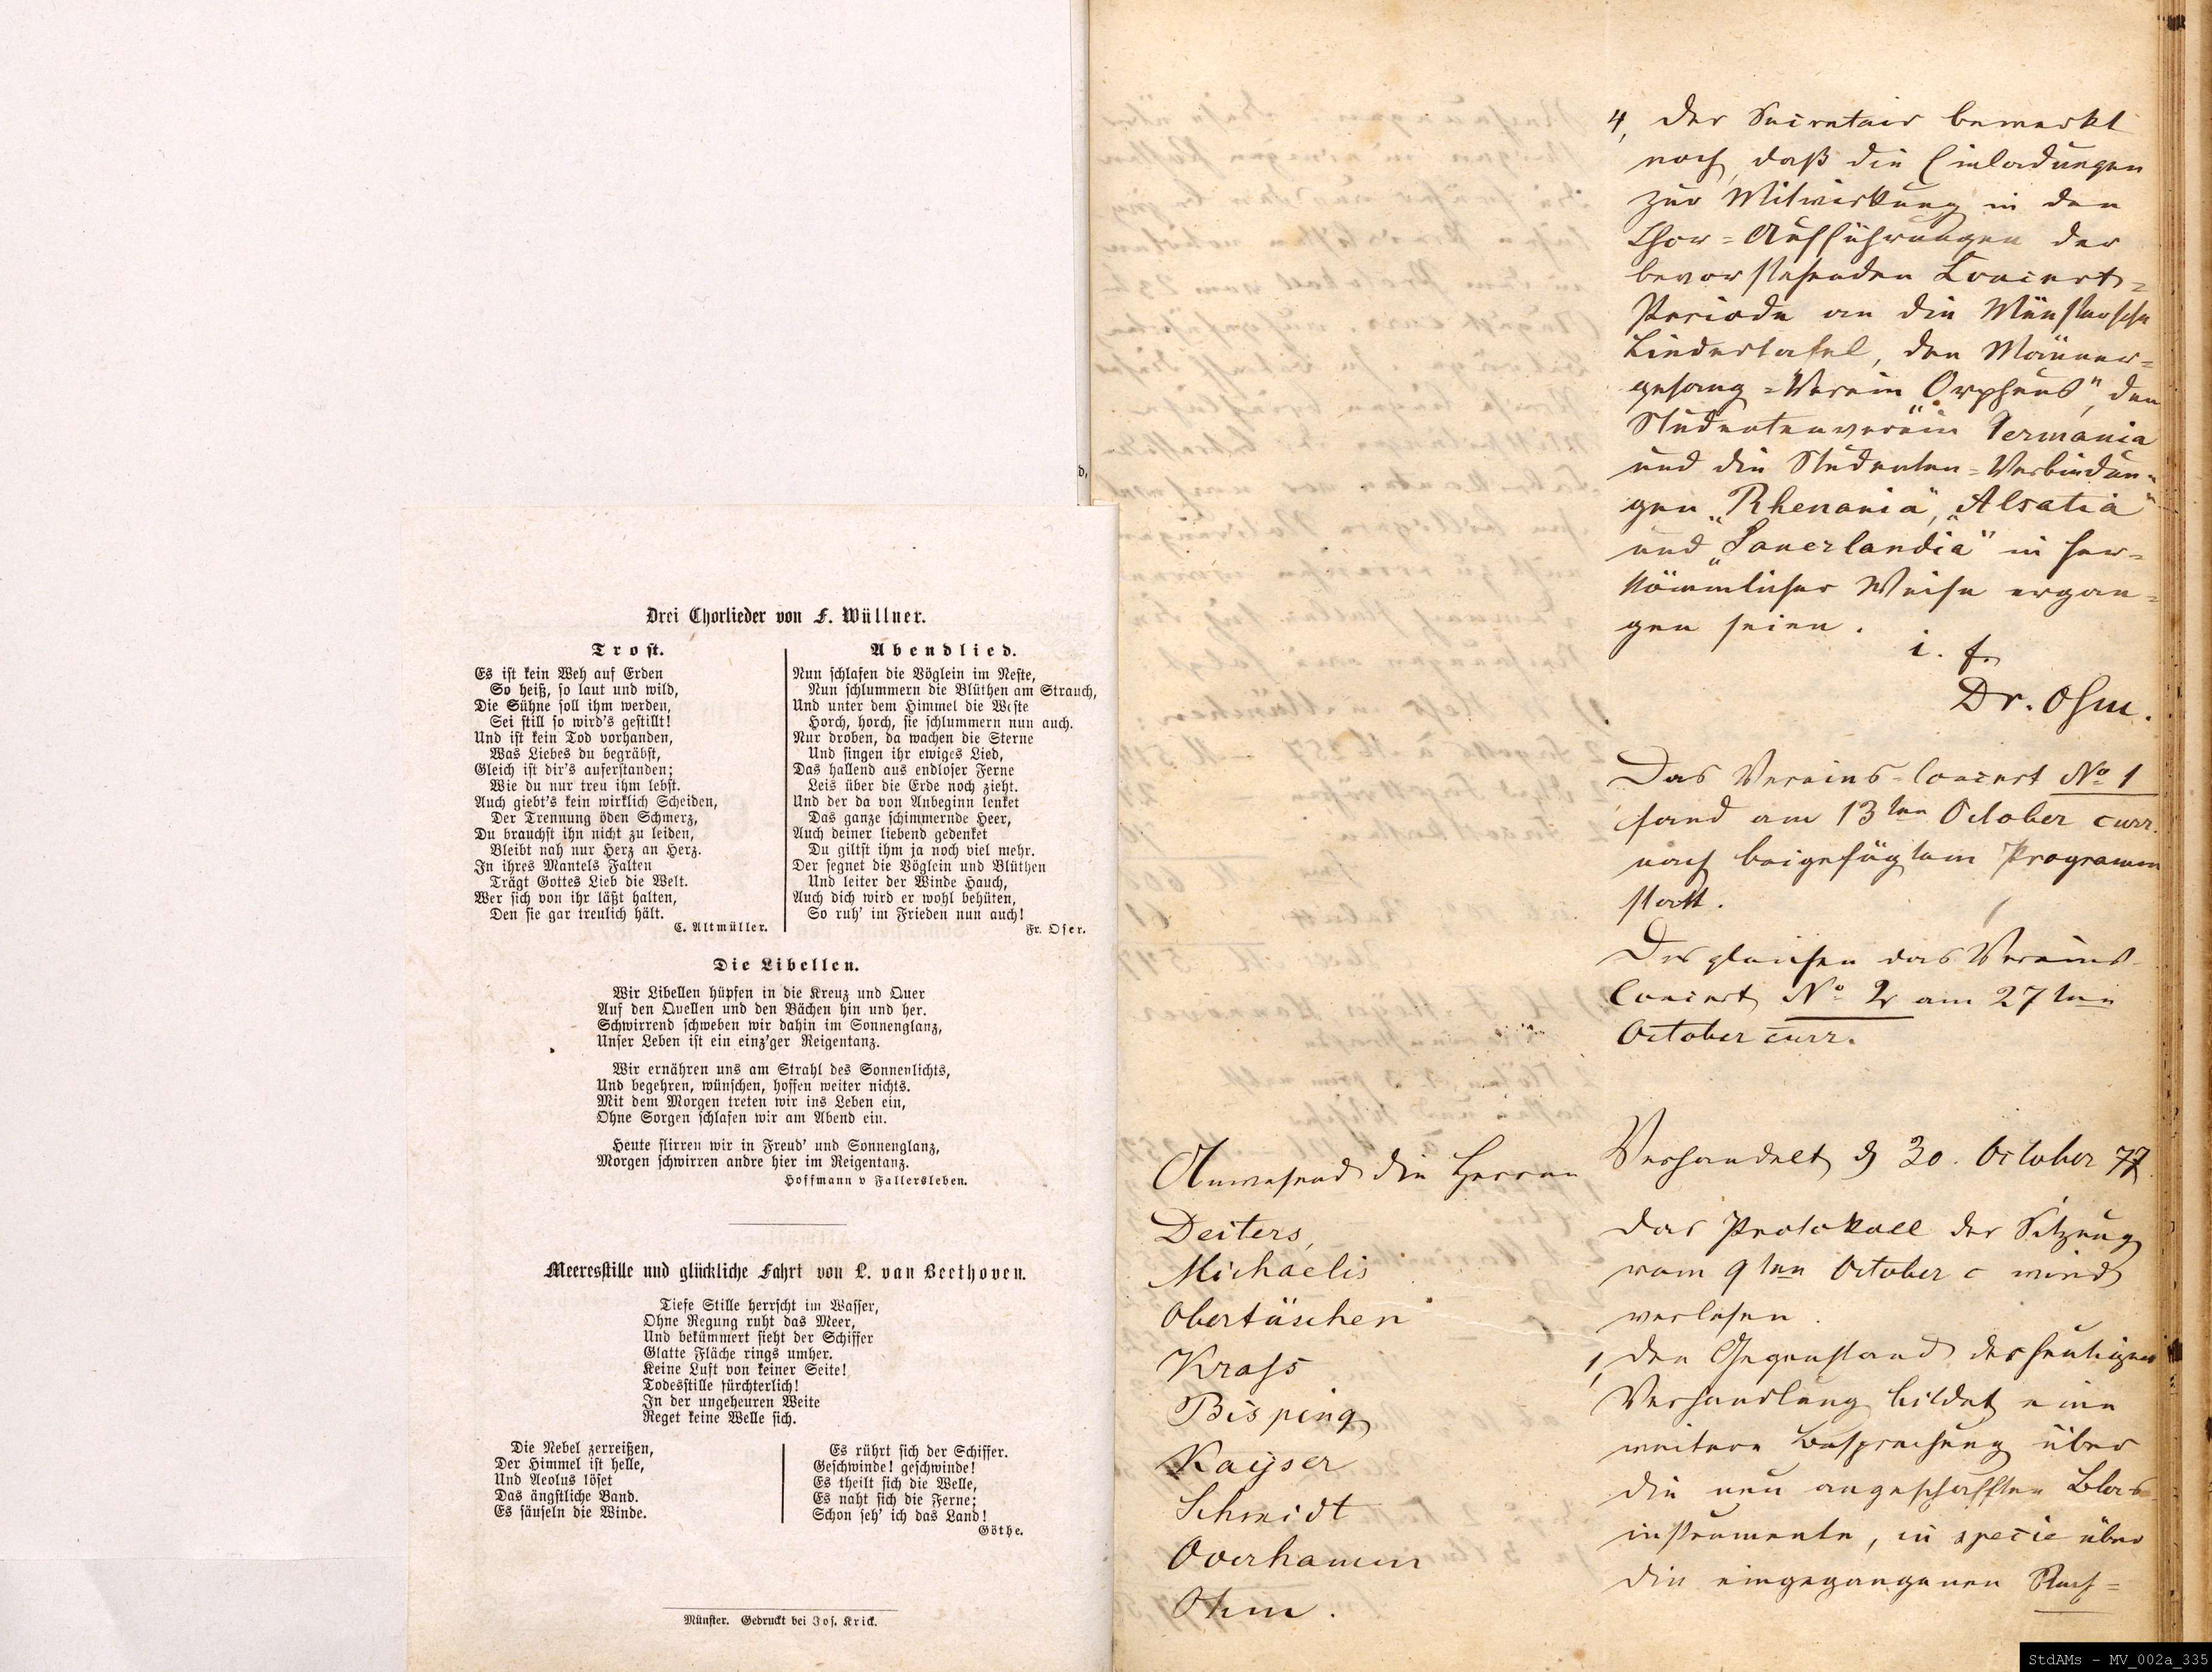 Drei Chorlieder von F. Wüllner.
Trost.
Es ist kein Weh auf Erden
So heiß, so laut und wild,
Die Sühne soll ihm werden,
Sei still so wird's gestillt!
Und ist kein Tod vorhanden,
Was Liebes du begräbst,
Gleich ist dir's auferstanden;
Wie du nur treu ihm lebst.
Auch giebt's kein wirklich Scheiden,
Der Trennung öden Schmerz,
Du brauchst ihn nicht zu leiden,
Bleibt nah nur Herz an Herz.
In ihres Mantels Falten
Trägt Gottes Lieb die Welt.
Wer sich von ihr läßt halten,
Den sie gar treulich hält.
C. Altmüller.
Abendlied.
Nun schlafen die Vöglein im Neste,
Nun schlummern die Blüthen am Strauch,
Und unter dem Himmel die Weste
Horch, horch, sie schlummern nun auch.
Nur droben, da wachen die Sterne
Und singen ihr ewiges Lied,
Das hallend aus endloser Ferne
Leis über die Erde noch zieht.
Und der da von Anbeginn lenket
Das ganze schimmernde Heer,
Auch deiner liebend gedenket
Du giltst ihm ja noch viel mehr.
Der segnet die Vöglein und Blüthen
Und leiter der Winde Hauch,
Auch dich wird er wohl behüten,
So ruh' im Frieden nun auch!
Fr. Oser.
Die Libellen.
Wir Libellen hüpfen in die Kreuz und Quer
Auf den Quellen und den Bächen hin und her.
Schwirrend schweben wir dahin im Sonnenglanz,
Unser Leben ist ein einz'ger Reigentanz.
Wir ernähren uns am Strahl des Sonnenlichts,
Und begehren, wünschen, hoffen weiter nichts.
Mit dem Morgen treten wir ins Leben ein,
Ohne Sorgen schlafen wir am Abend ein.
Heute flirren wir in Freud' und Sonnenglanz,
Morgen schwirren andre hier im Reigentanz.
Hoffmann v Fallersleben.
Meeresstille und glückliche Fahrt von L. van Beethoven.
Tiefe Stille herrscht im Wasser,
Ohne Regung ruht das Meer,
Und bekümmert sieht der Schiffer
Glatte Fläche rings umher.
Keine Luft von keiner Seite!
Todesstille fürchterlich!
In der ungeheuren Weite
Reget keine Welle sich.
Die Nebel zerreißen,
Der Himmel ist helle,
Und Aeolus löset
Das ängstliche Band.
Es säuseln die Winde.
Es rührt sich der Schiffer.
Geschwinde! geschwinde!
Es theilt sich die Welle,
Es naht sich die Ferne;
Schon seh' ich das Land!
Göthe.
Münster. Gedruckt bei Jos. Krick.
d,
4, Der Secretair bemerkt
noch, daß die Einladungen
zur Mitwirkung in den
Chor=Aufführungen der
bevorstehenden Concert=
Periode an die Münstersche
Liedertafel, den Männer=
gesang=Verein „Orpheus", den
Studentenverein „Germania
und die Studenten=Verbindun=
gen „Rhenania", „Alsatia"
und „Sauerlandia" in her=
kömmlicher Weise ergan=
gen seien.
i. f.
Dr. Ohm.
Das Vereins-Concert No 1
fand am 13ten October curr.
nach beigefügtem Programm
statt.
Desgleichen das Vereins-
Concert No 2 am 27ten
October curr.
Anwesend die Herren
Deiters,
Michaelis
Obertüschen
Krass
Bisping
Kayser
Schmidt
Overhamm
Ohm.
Verhandelt d 30. October 77
Das Protokoll der Sitzung
vom 9ten October c wird
verlesen.
1, Den Gegenstand der heutigen
Verhandlung bildet eine
weitere Besprechung über
die neu angeschafften Blas
instrumente, in specie über
die eingegangenen Rech=
StdAMs - MV_002a_335